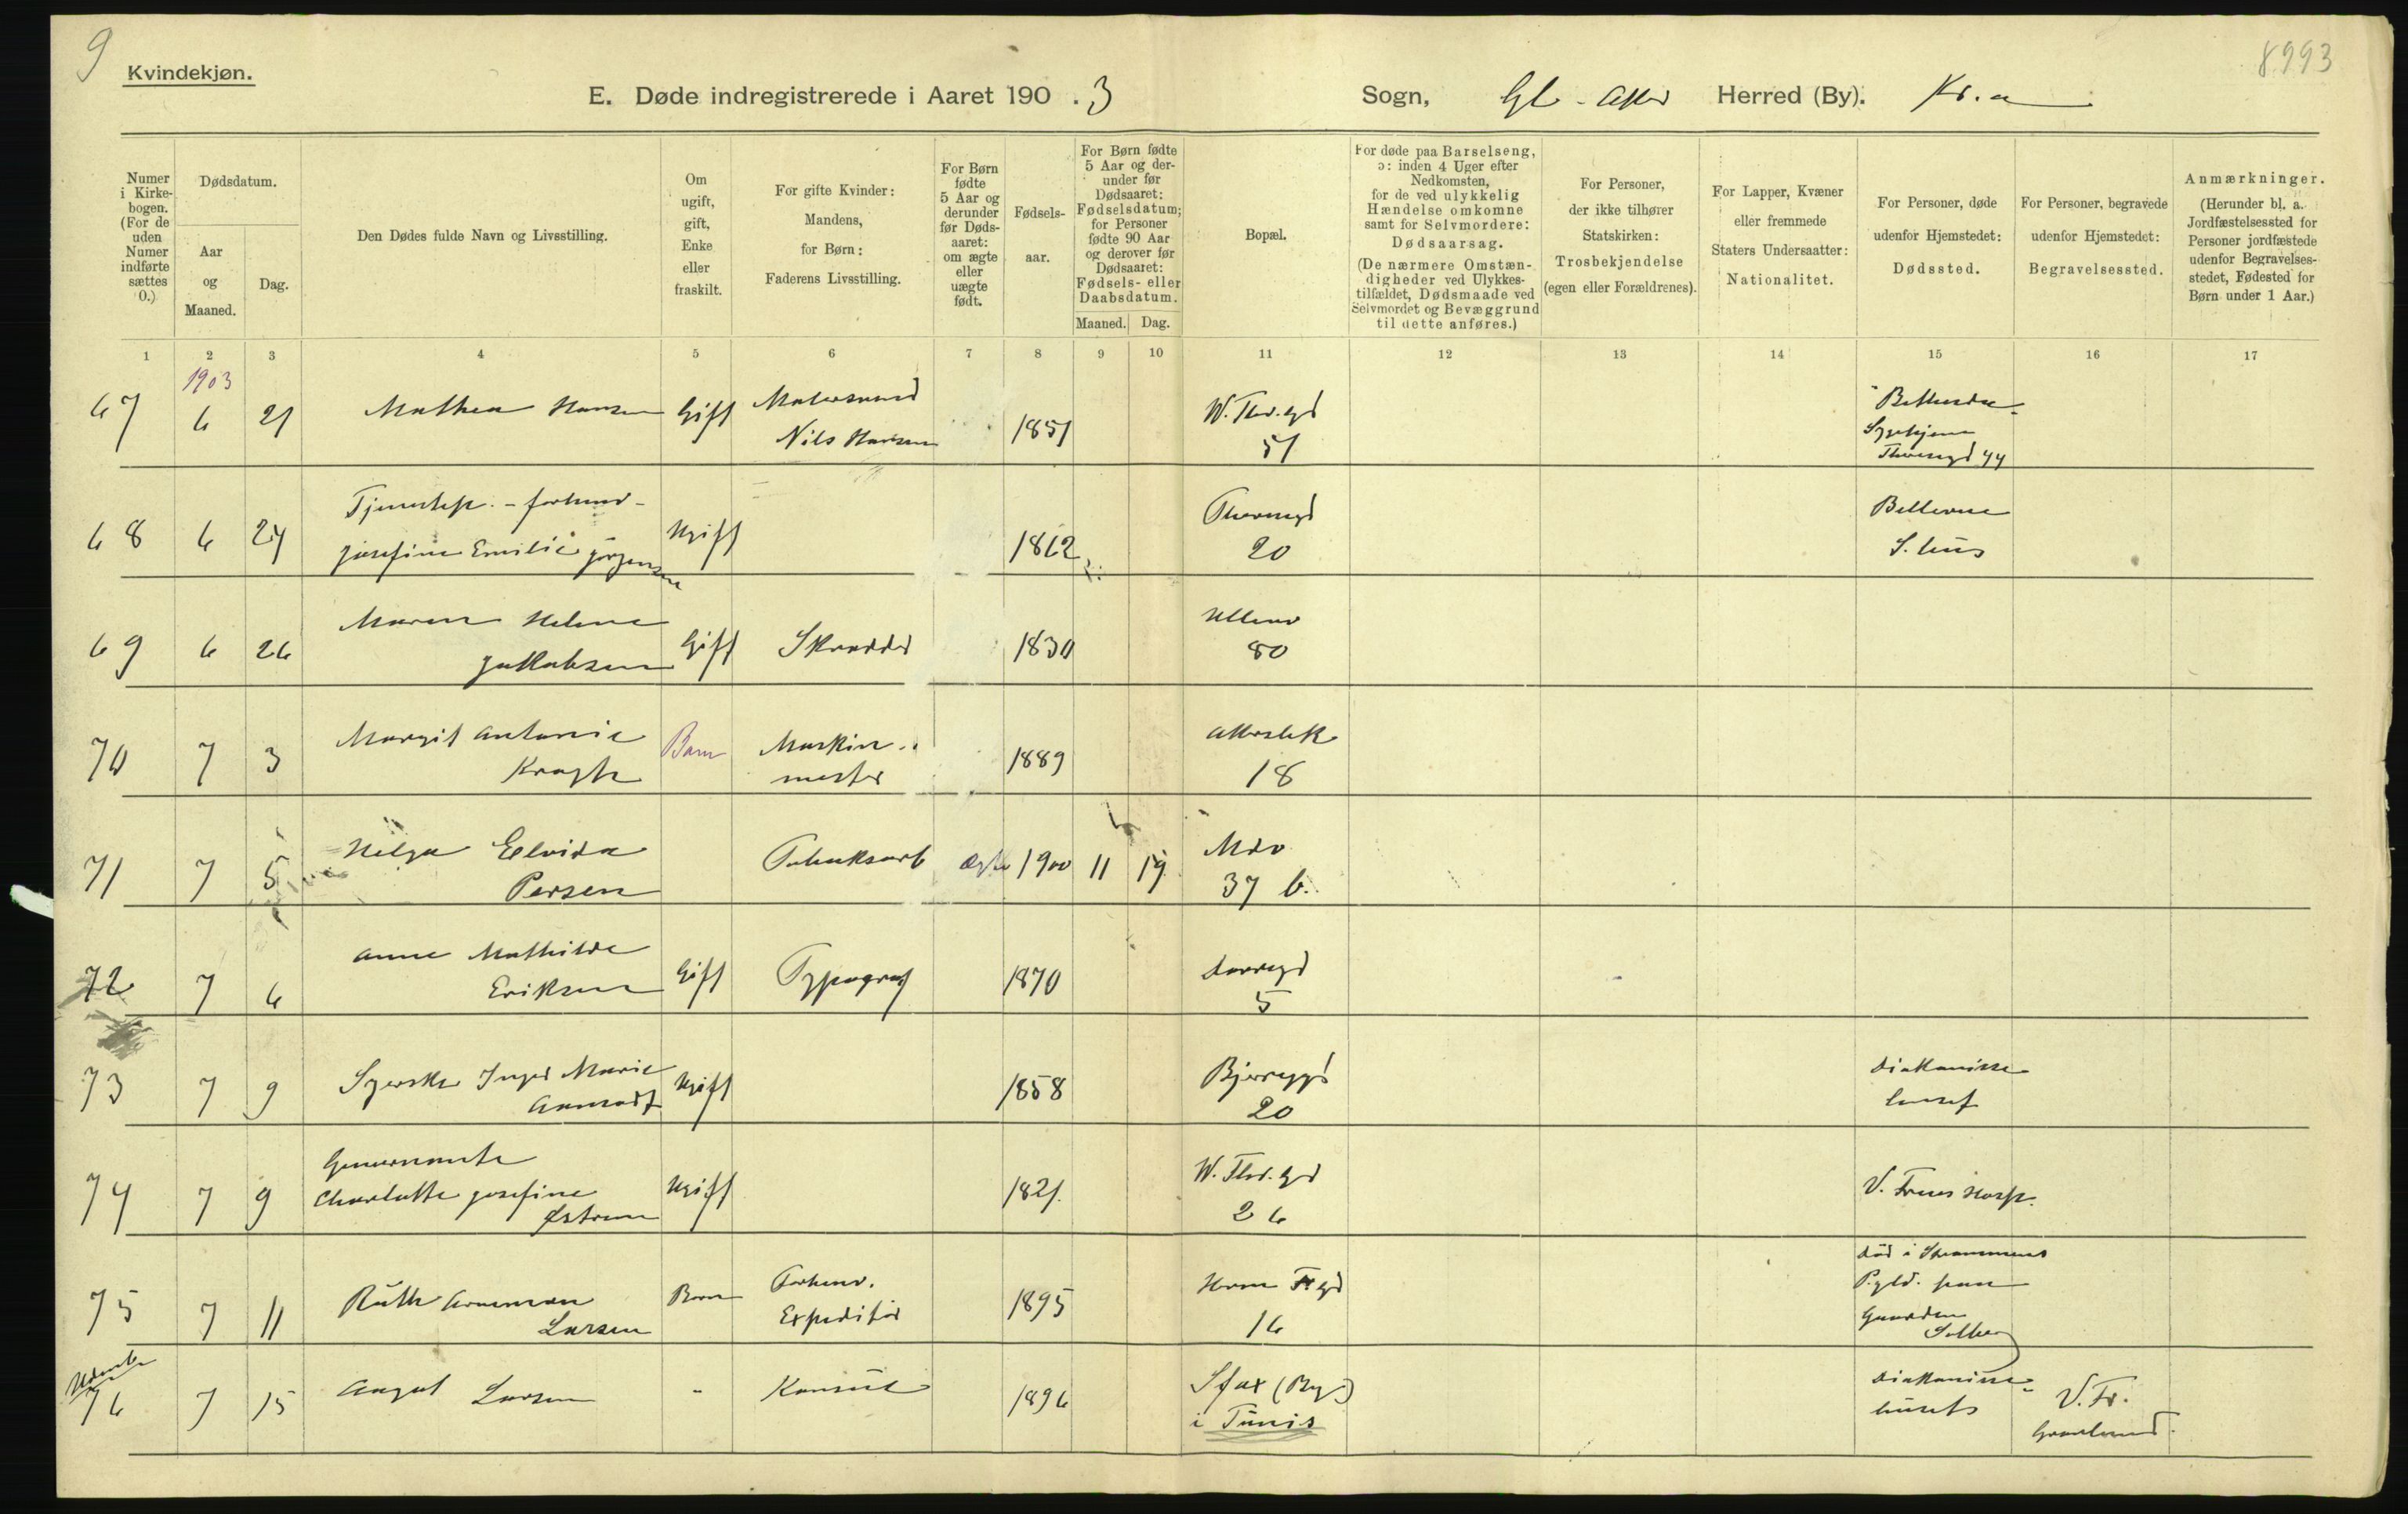 9
Kvindekjøn.
8993
E. Døde indregistrerede i Aaret 190 . 3 Sogn, Gl - Aker Herred (By). Kr.a
Numer
i Kirke-
bogen.
(For de
uden
Numer
indførte
sættes
0.)
Dødsdatum.
Aar
og
Maaned.
Dag.
Den Dødes fulde Navn og Livsstilling.
Om
ugift,
gift,
Enke
eller
fraskilt.
For gifte Kvinder:
Mandens,
for Børn:
Faderens Livsstilling.
For Børn
fødte
5 Aar og
derunder
før Døds-
aaret:
om ægte
eller
uægte
født.
Fødsels-
aar.
For Børn fødte
5 Aar og der-
under før
Dødsaaret:
Fødselsdatum;
for Personer
fødte 90 Aar
og derover før
Dødsaaret:
Fødsels- eller
Daabsdatum.
Maaned. Dag.
Bopæl.
For døde paa Barselseng,
ɔ: inden 4 Uger efter
Nedkomsten,
for de ved ulykkelig
Hændelse omkomne
samt for Selvmordere:
Dødsaarsag.
(De nærmere Omstæn-
digheder ved Ulykkes-
tilfældet, Dødsmaade ved
Selvmordet og Bevæggrund
til dette anføres.)
For Personer,
der ikke tilhører
Statskirken:
Trosbekjendelse
(egen eller Forældrenes).
For Lapper, Kvæner
eller fremmede
Staters Undersaatter:
Nationalitet.
For Personer, døde
udenfor Hjemstedet:
Dødssted.
For Personer, begravede
udenfor Hjemstedet:
Begravelsessted.
Anmærkninger.
(Herunder bl. a.
Jordfæstelsessted for
Personer jordfæstede
udenfor Begravelses-
stedet, Fødested for
Børn under 1 Aar.)
1 2 3 4 5 6 7 8 9 10 11 12 13 14 15 16 17
1903
67 6 21 Mathea Hansen Gift
Nils Hansen
1851
W. Thr. gd
51
Sygehjem
44
68 6 24
Josefine Emilie Jörgensen
Ugift
1862
20
S. hus
69 6 26 Maren Helene
Jakobsen
Gift Skrædder 1830
80
70 7 3 Margit Antonie
Kragh
Barn Maskin
mester
1889
18
71 7 5 Helga Elvida
Persen
ægte 1900 11 19
37 b.
72 7 6 Anne Mathilde
Eriksen
Gift Typograf 1870
5
73 7 9 Inger Marie
Ugift 1858
20
Diakonisse
74 7 9 Guvernante
Charlotte Josefine
Ugift 1821.
W. Thr. gd
26
V. Frues Hosp.
75 7 11 Ruth
Larsen
Barn Forhenv.
Expeditør
1895
16
död i
76 7 15 Larsen - Konsul 1896
Sfax (By)
i Tunis
Diakonisse-
husets
V. Fr.
Gravlund.